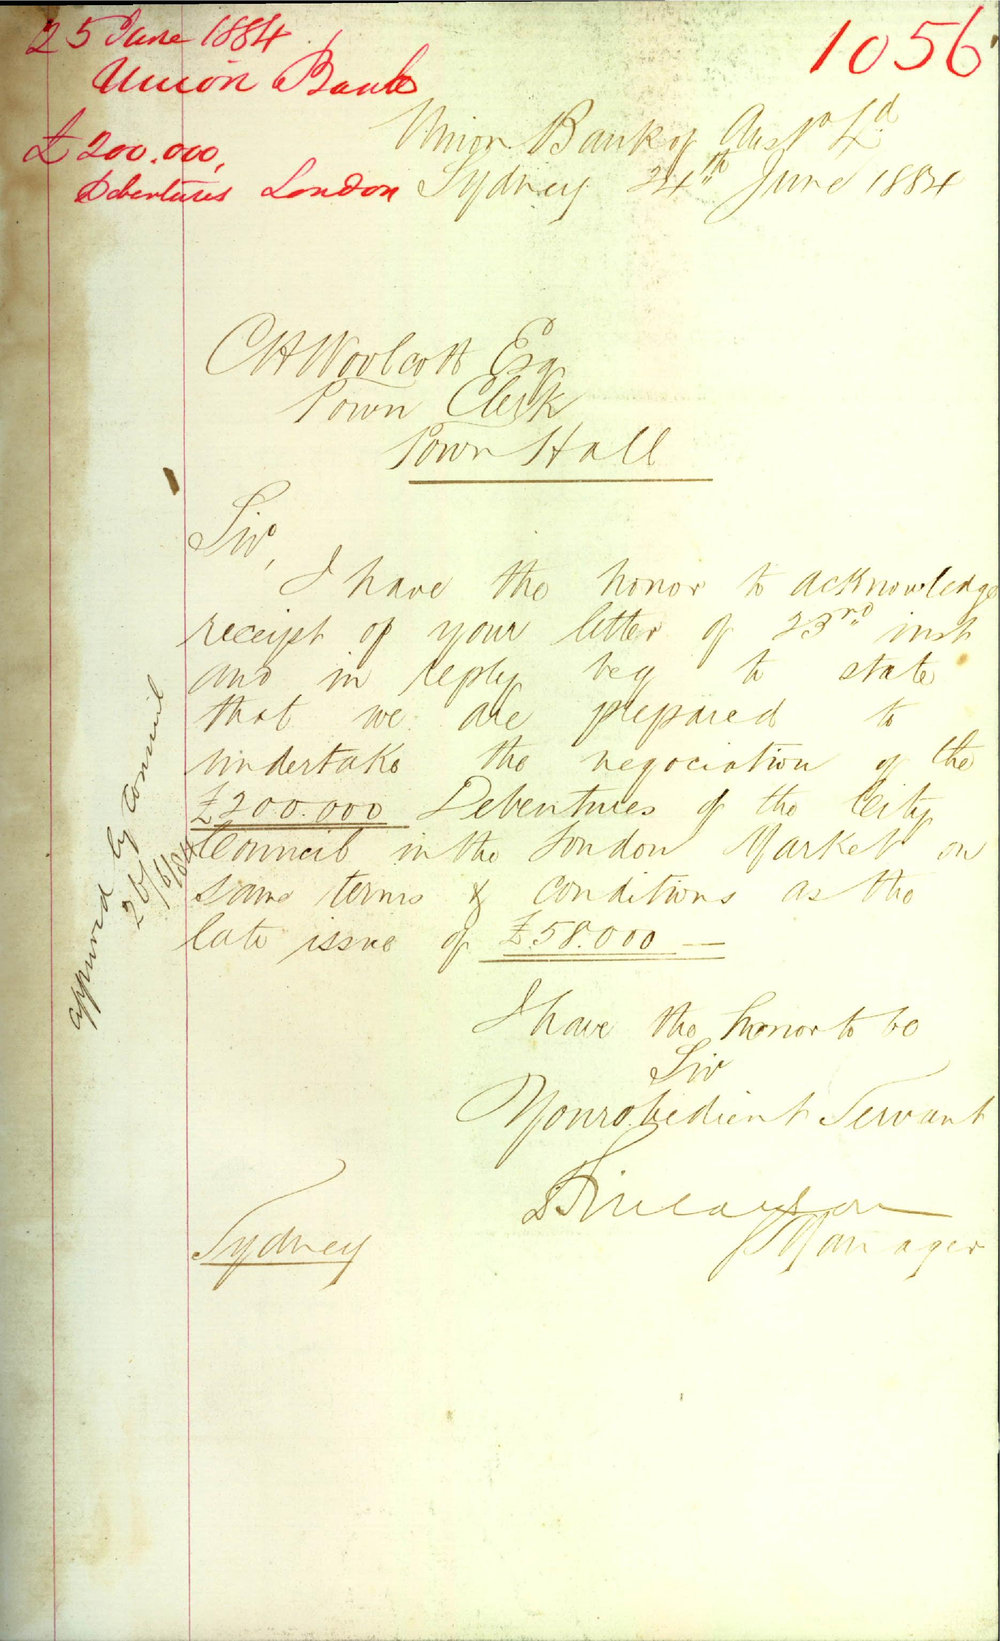 25 June 1884
Union Bank
£200.000,
Debentures London
1056
Union Bank of Aust.a Ld
Sydney 24th June 1884
C H Woolcott Esq
Town Clerk
Town Hall
Sir,
I have the honor to acknowledge
receipt of your letter of 23rd inst
and in reply beg to state
that we are prepared to
undertake the negociation of the
£200.000 Debentures of the City
Council in the London Market on
same terms & conditions as the
late issue of £58.000 —
I have the honor to be
Sir
Your obedient Servant
Manager
Sydney
approved by Council
26/6/84